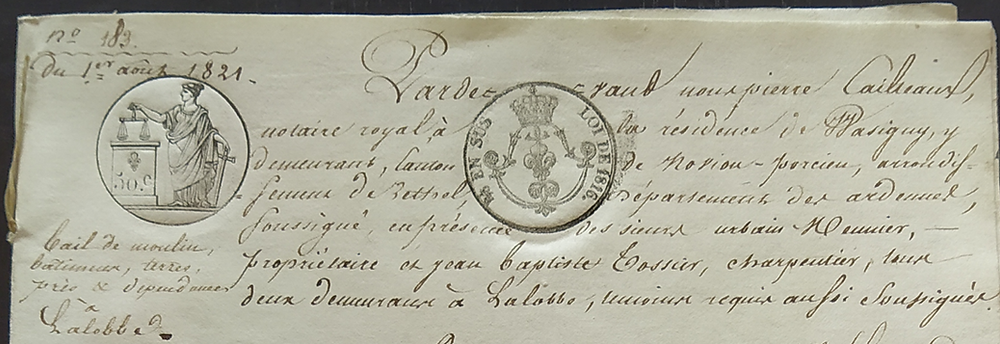 n.º 183.
Du 1.er août 1821.
50.c
EN SUS
LOI DE 1816.
Pardevant nous pierre Cailteaux,
notaire royal à la résidence de Wasigny, y
demeurant, Canton de Novion-porcien, arrondis-
sement de Rethel, Département des ardennes,
soussigné, en présence des sieurs urbain Meunier, —
propriétaire et jean baptiste Tossier, charpentier, tous
deux demeurant à Lalobbe, témoins requis aussi soussignés.
bail de moulin,
bâtiment, terres,
prés & dépendances
à
Lalobbe